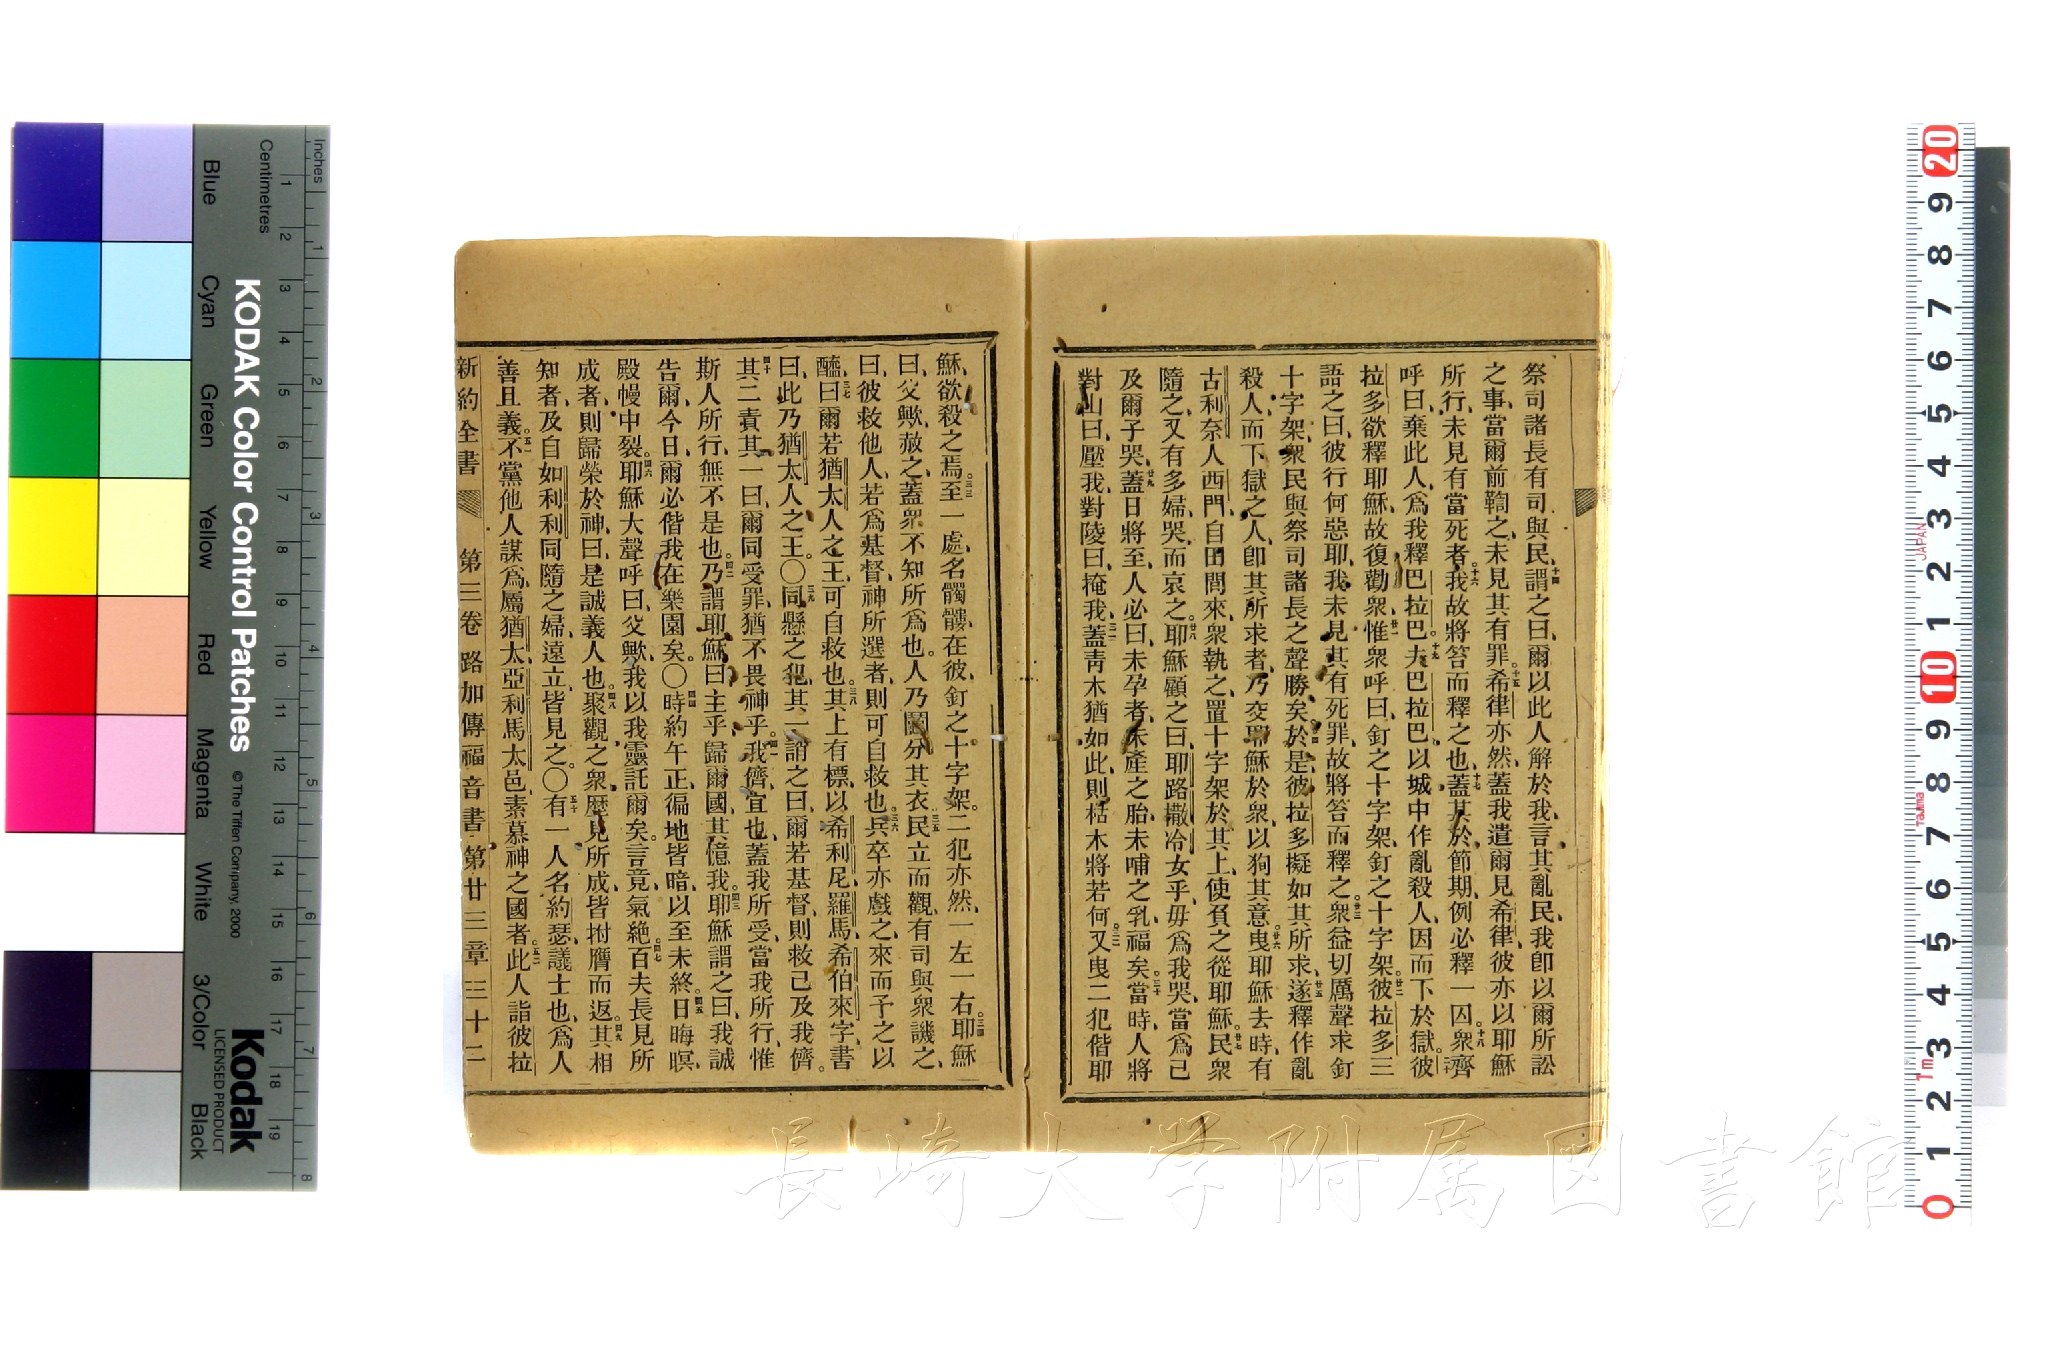 祭司諸長有司與民、十四謂之曰、爾以此人解於我、言其亂民、我卽以爾所訟
之事、當爾前鞫之、未見其有罪。十五希律亦然、蓋我遣爾見希律、彼亦以耶穌
所行、未見有當死者。十六我故將笞而釋之也、十七蓋於節期、例必釋一囚。十八衆齊
呼曰、棄此人、爲我釋巴拉巴。十九夫巴拉巴以城中作亂殺人、因而下於獄。彼
拉多欲釋耶穌、故復勸衆、廿一惟衆呼曰、釘之十字架、釘之十字架。廿二彼拉多三
語之曰、彼行何惡耶、我未見其有死罪、故將笞而釋之。廿三衆益切厲聲求釘
十字架、衆民與祭司諸長之聲勝矣。廿四於是彼拉多擬如其所求、廿五遂釋作亂
殺人、而下獄之人、卽其所求者、乃交耶穌於衆、以狥其意。廿六曳耶穌去時、有
古利奈人西門、自田間來、衆執之、置十字架於其上、使負之從耶穌。廿七民衆
隨之、又有多婦、哭而哀之。廿八耶穌顧之曰、耶路撒冷女乎、毋爲我哭、當爲己
及爾子哭、廿九蓋日將至、人必曰、未孕者、未產之胎、未哺之乳、福矣。三十當時、人將
對山曰、壓我、對陵曰、掩我、三一蓋靑木猶如此、則枯木將若何。三二又曳二犯偕耶
穌、欲殺之焉。三三至一處、名髑髏、在彼釘之十字架。二犯亦然、一左一右。三四耶穌
曰、父歟、赦之、蓋衆不知所爲也。人乃鬮分其衣、三五民立而觀、有司與衆譏之、
曰、彼救他人、若爲基督、神所選者、則可自救也。三六兵卒亦戲之、來而予之以
醯、三七曰、爾若猶太人之王、可自救也。三八其上有標、以希利尼羅馬希伯來字、書
曰、此乃猶太人之王。〇三九同懸之犯、其一誚之曰、爾若基督、則救己及我儕。
四十其二責其一曰、爾同受罪、猶不畏神乎、四一我儕宜也、蓋我所受、當我所行、惟
斯人所行、無不是也。四二乃謂耶穌曰、主乎、歸爾國、其憶我。四三耶穌謂之曰、我誠
告爾、今日、爾必偕我在樂園矣。〇四四時約午正、徧地皆暗、以至未終。四五日晦暝、
殿幔中裂。四六耶穌大聲呼曰、父歟、我以我靈託爾矣。言竟、氣絕、四七百夫長見所
成者、則歸榮於神曰、是誠義人也、四八聚觀之衆、歷見所成、皆拊膺而返。四九其相
知者、及自如利利同隨之婦、遠立皆見之。〇五十有一人、名約瑟、議士也、爲人
善且義。五一不黨他人謀爲、屬猶太、亞利馬太邑、素慕神之國者。五二此人詣彼拉
新約全書　第三卷　路加傳福音書　第廿三章　三十二
KODAK Color Control Patches
© The Tiffen Company, 2000
Kodak
LICENSED PRODUCT
Inches
Centimetres
Blue
Cyan
Green
Yellow
Red
Magenta
White
3/Color
Black
JAPAN
Tajima
1m
長崎大学附属図書館